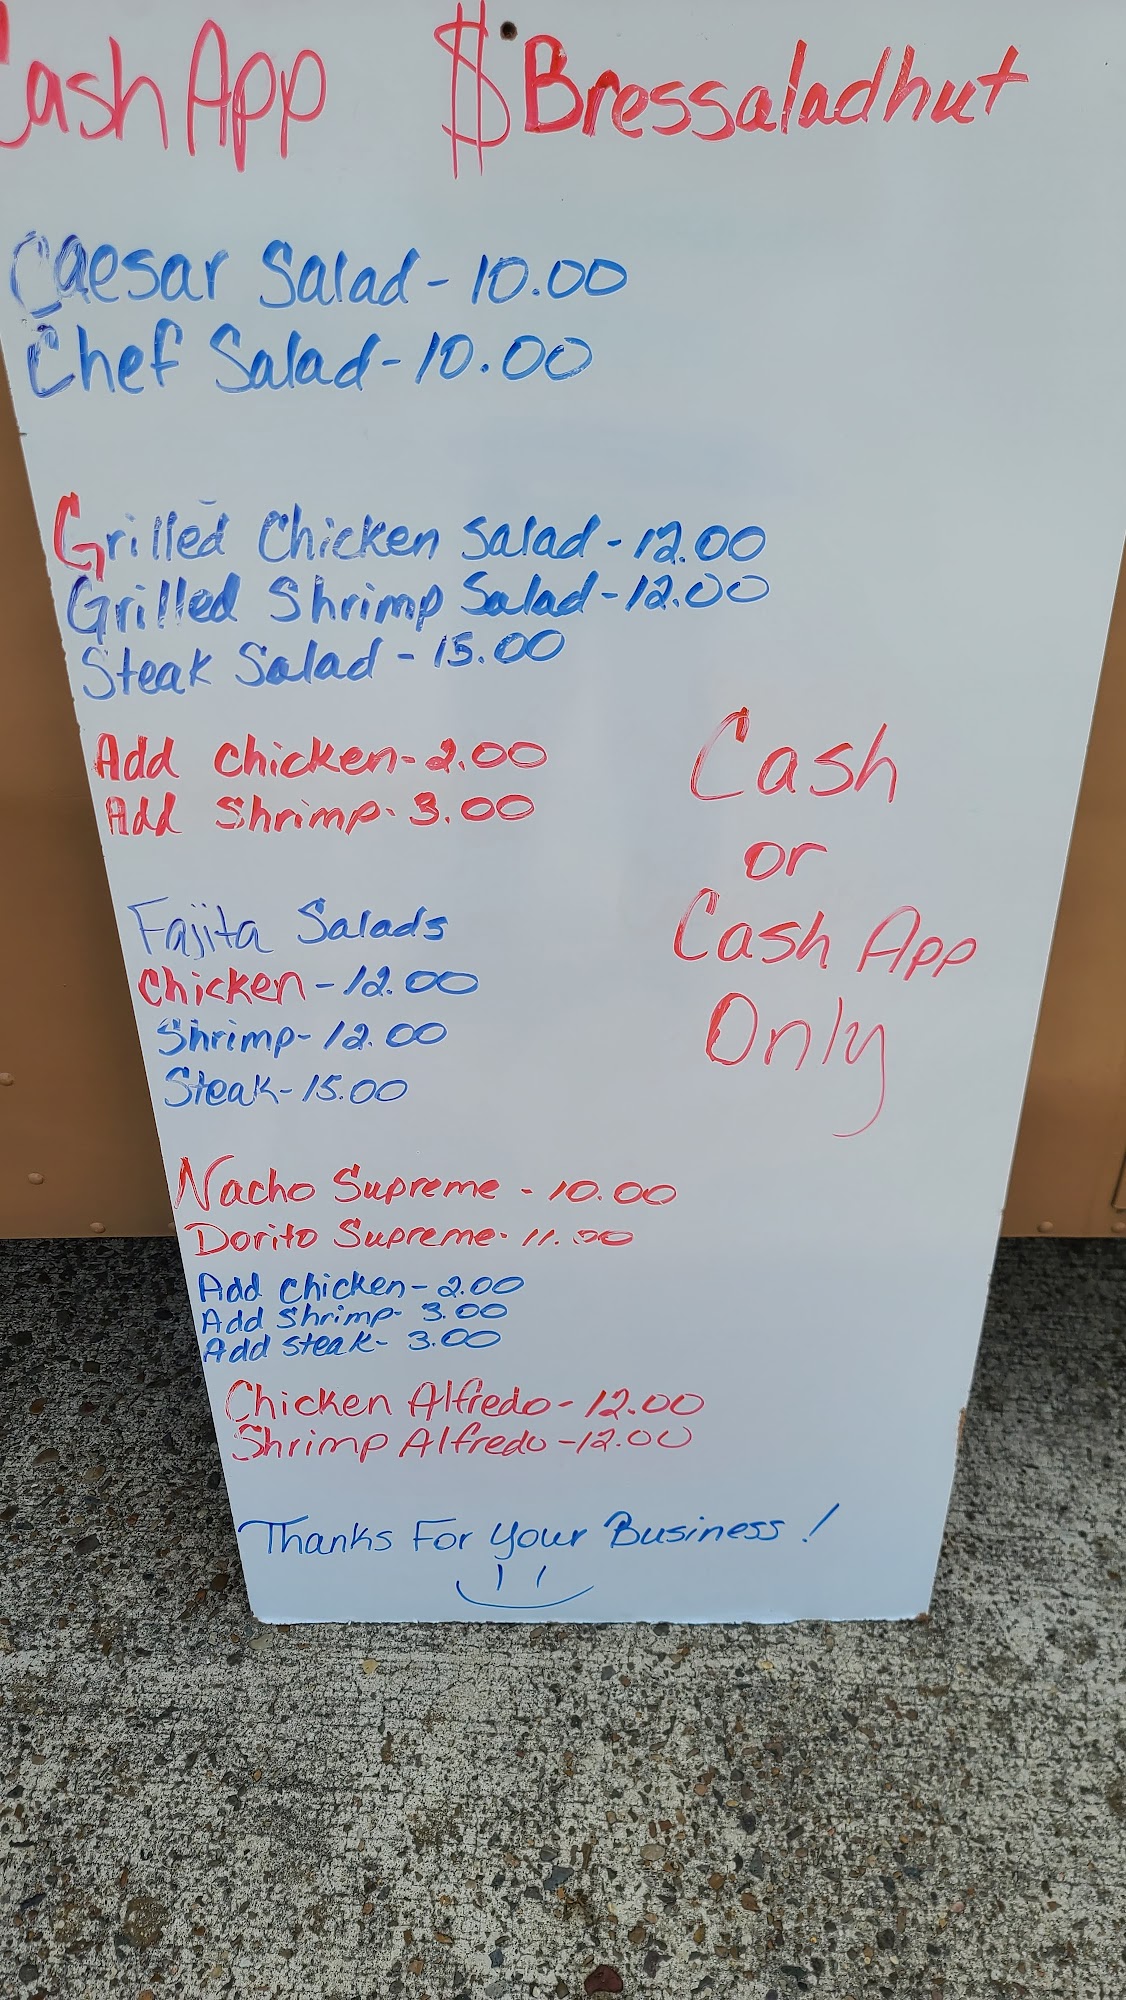 Cash App $Bressaladhut
Caesar Salad - 10.00
Chef Salad - 10.00
Grilled Chicken Salad - 12.00
Grilled Shrimp Salad - 12.00
Steak Salad - 15.00
Add chicken - 2.00
Add Shrimp - 3.00
Cash
or
Cash App
Only
Fajita Salads
Chicken - 12.00
Shrimp - 12.00
Steak - 15.00
Nacho Supreme - 10.00
Dorito Supreme - 11.00
Add chicken - 2.00
Add shrimp - 3.00
Add steak - 3.00
Chicken Alfredo - 12.00
Shrimp Alfredo - 12.00
Thanks For Your Business!